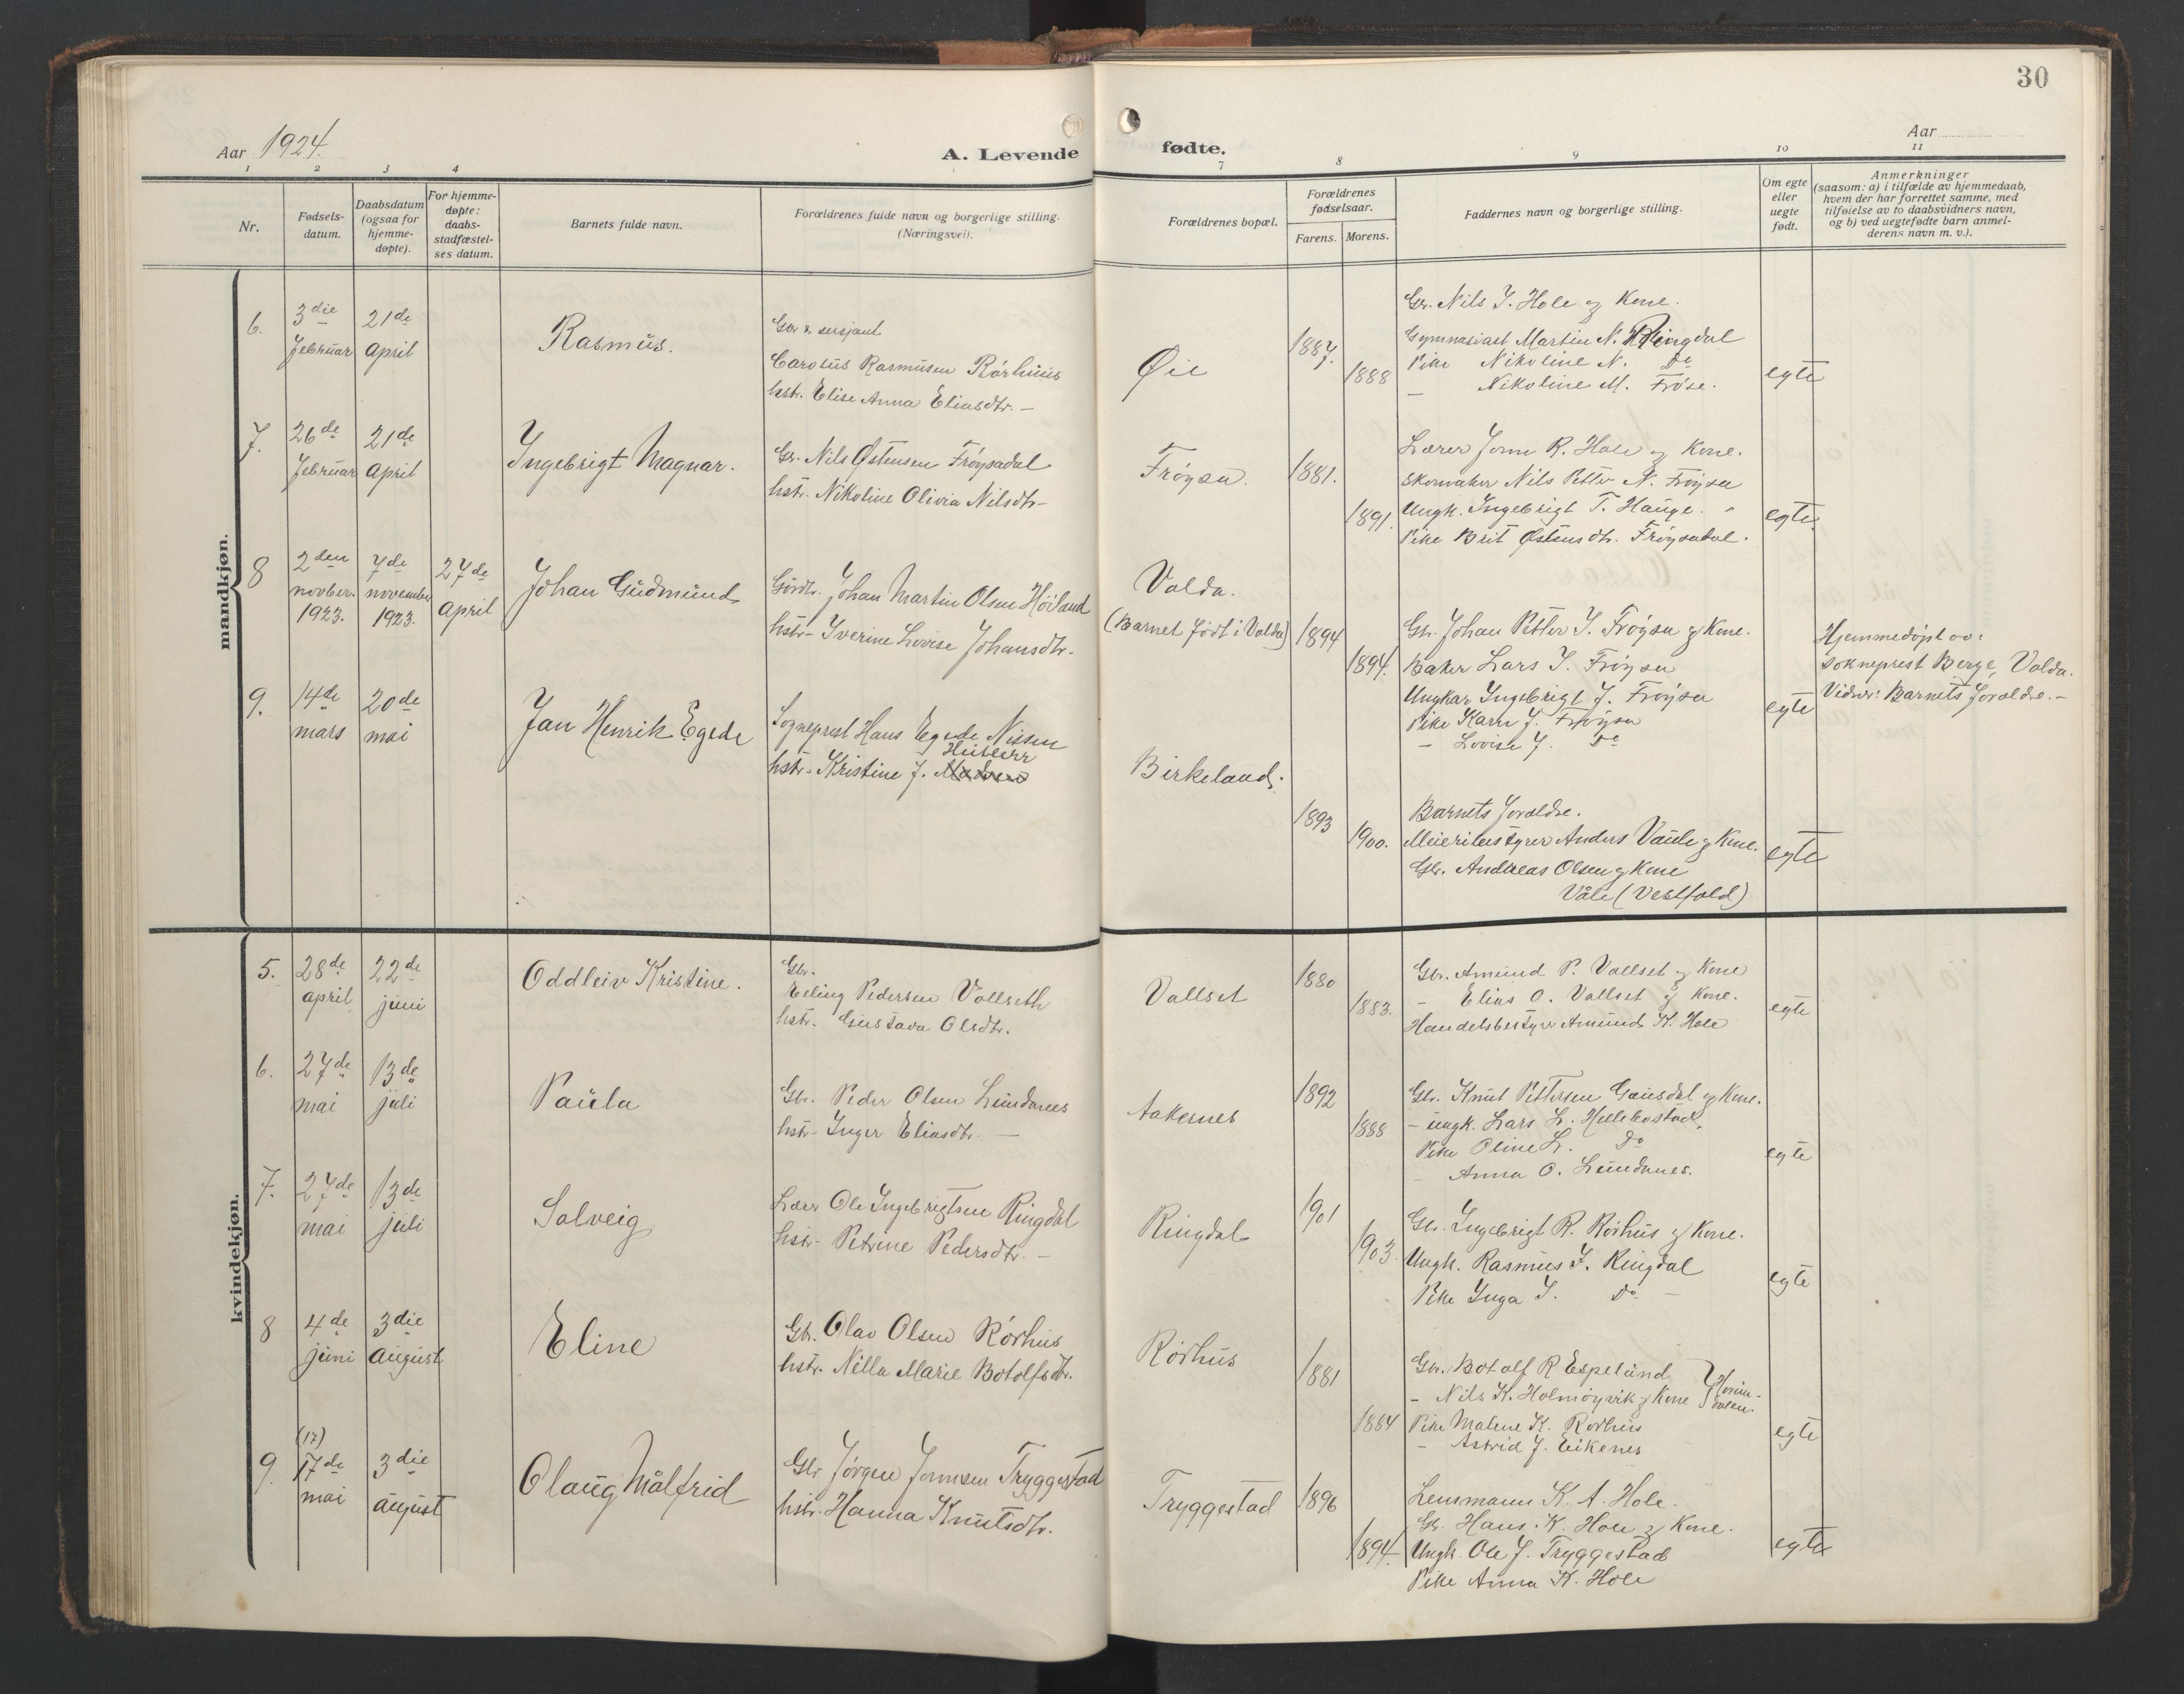 30
Aar 1924.
A. Levende
fødte.
Aar
1 2 3 4
7 8 9 10 11
Nr.
Fødsels-
datum.
Daabsdatum
(ogsaa for
hjemme-
døpte).
For hjemme-
døpte:
daabs-
stadfæstel-
ses datum.
Barnets fulde navn.
Forældrenes fulde navn og borgerlige stilling.
(Næringsvei).
Forældrenes bopæl.
Forældrenes
fødselsaar.
Farens. Morens.
Faddernes navn og borgerlige stilling.
Om egte
eller
uegte
født.
Anmerkninger
(saasom: a) i tilfælde av hjemmedaab,
hvem der har forrettet samme, med
tilføielse av to daabsvidners navn,
og b) ved uegtefødte barn anmel-
derens navn m. v.).
mandkjøn.
6.
3die
februar
21de
april
Rasmus.
Gbr. & sersjant
Carolus Rasmusen Rörhuus
hstr. Elise Anna Eliasdtr. –
Øie
1887.
1888
Gbr. Nils J. Hole og Kone.
Gymnasiast Martin N. Ringdal
Pike Nikoline N. Do
– Nikoline M. Fröse.
egte
7.
26de
februar
21de
april
Ingebrigt Magnar.
Gbr. Nils Østensen Fröysadal
hstr. Nikoline Olivia Nilsdtr –
Fröysa.
1881.
1891.
Lærer Jonn R. Hole og Kone.
Skomaker Nils Petter N. Fröysa
Ungk. Ingebrigt T. Hauge. "
Pike Brit Østensdtr. Fröysadal.
egte
8
2den
novber.
1923.
7de
november
1923.
27de
april
Johan Gudmund
Gårdbr. Johan Martin Olsen Höiland
hstr – Iverine Lovise Johansdtr.
Volda.
(Barnet født i Volda)
1894
1894.
Gbr. Johan Petter I. Fröysa og Kone.
Baker Lars I. Fröysa
Ungkar Ingebrigt J. Fröysa
Pike Karen J. Fröysa
– Lovise J. Do
egte
Hjemmedøpt av:
sokneprest Berge, Volda.
Vidner: Barnets foræld­re. –
9.
14de
mars
20de
mai
Jan Henrik Egede
Sogneprest Hans Egede Nissen
Heiberg
hstr – Kristine J.
Birkeland.
1893
1900.
Barnets forældre.
Meieribestyrer Anders Vaule og Kone.
Gbr. Andreas Olsen og Kone
Våle (Vestfold)
egte
kvindekjøn.
5.
28de
april
22de
juni
Oddleiv Kristine.
Gbr.
Eeling Pedersen Vollseth
hstr. Gustava Olsdtr.
Vallset
1880
1883.
Gbr. Amund P. Vallset og Kone
– Elias O. Vallset og Kone.
Handelsbestyrer Amund K. Hole
egte
6.
27de
mai
13de
juli
Paula
Gbr. Peder Olsen Lundanes
hstr – Inger Eliasdtr. –
Aakernes
1892
1888
Gbr. Knut Pettersen Gausdal og Kone.
– ungk. Lars L. Hellebostad.
Pike Oline L. Do
– Anna O. Lundanes.
egte
7.
27de
mai
13de
juli
Solveig
Lærer Ole Ingebrigtsen Ringdal
hstr – Petrine Pedersdtr. –
Ringdal
1901
1903.
Gbr. Ingebrigt R. Rörhus og Kone.
Ungk. Rasmus I. Ringdal
Pike Inga I. Do –
egte
8
4de
juni
3die
august
Eline
Gbr. Olav Olsen Rörhus
hstr. Nilla Marie Botolfsdtr.
Rörhus
1881
1884
Gbr. Botolf R Espelund
– Nils K. Holmöyvik og Kone
Hornin-
dalen.
Pike Malene K. Rörhus
– Astrid J. Eikenes
egte
9.
(17)
17de
mai
3die
august
Olaug Målfrid
Gbr Jörgen Jonnsen Tryggestad
hstr. Hanna Knutsdtr.
Tryggestad
1896
1894.
Lensmann K. A. Hole.
Gbr. Hans. K. Hole og Kone.
Ungk. Ole J. Tryggestad
Pike Anna K. Hole
egte